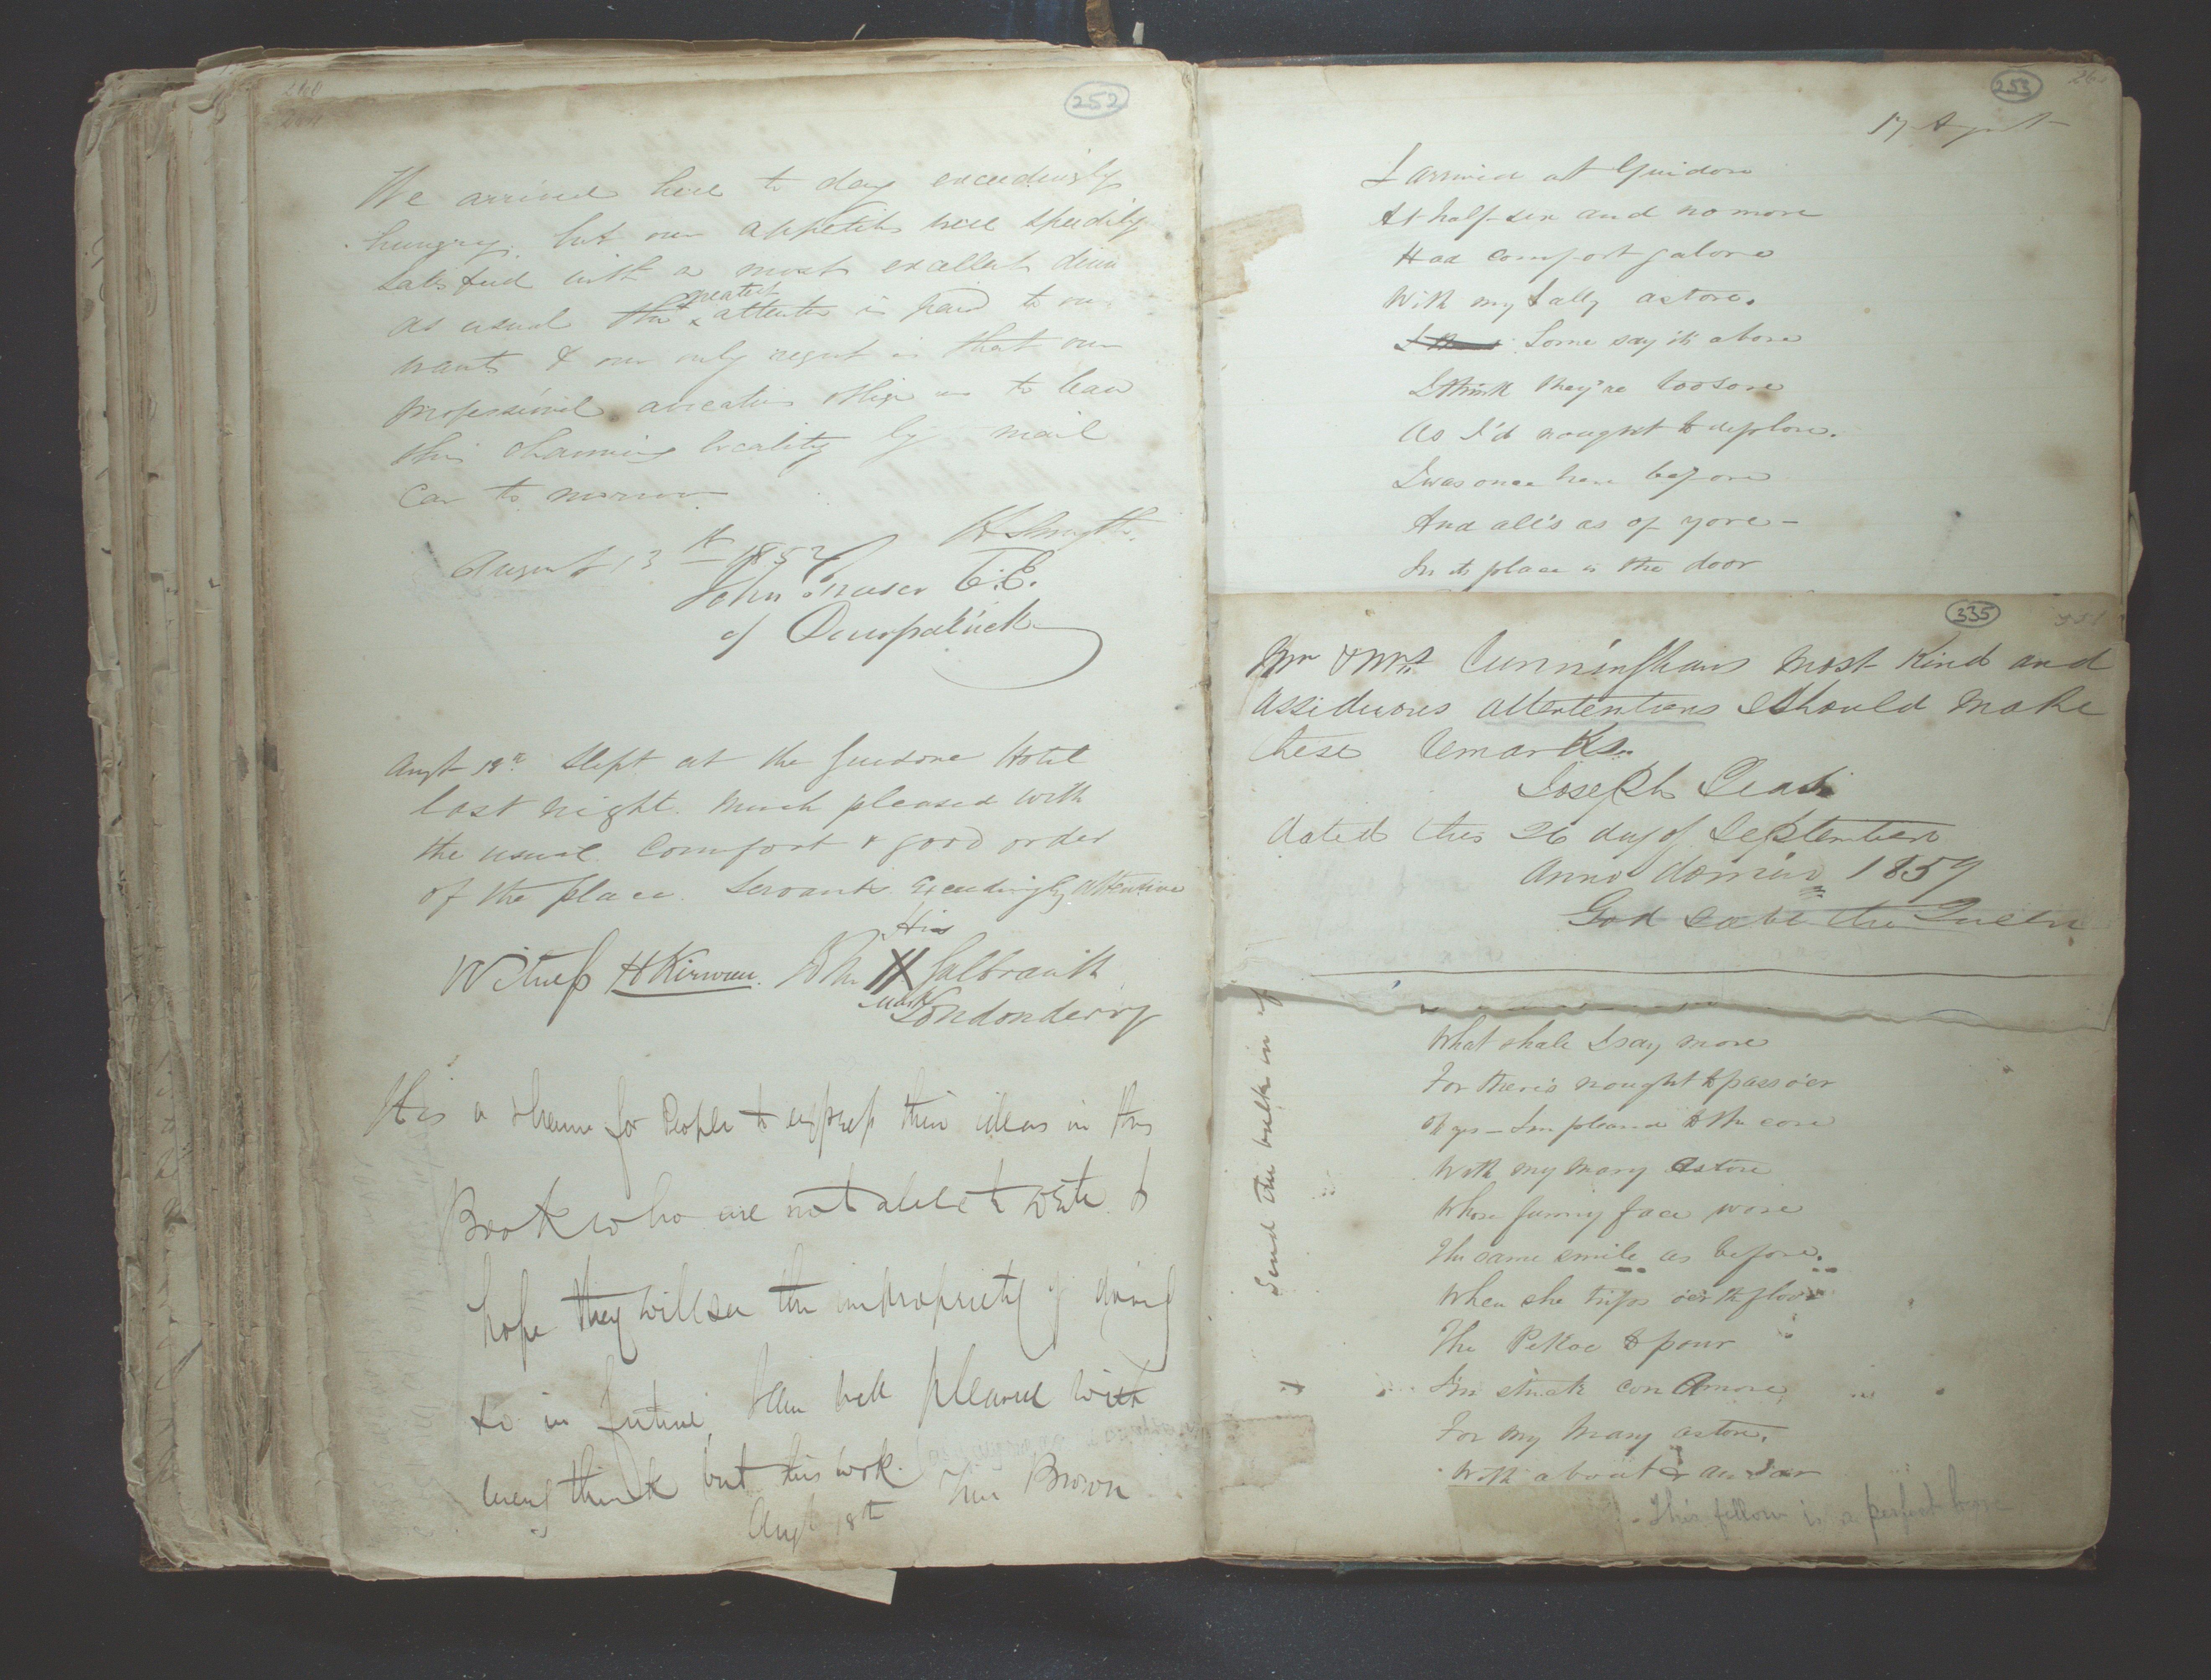 252
We arrived here to day exceedingly
hungry. but our appetites were speedily
satisfied with a most excellent
as usual the greatest attention is paid to our
wants & our only regret is that our
professional avocations oblige us to leave
this charming locality by mail
Car to morrow
H Smyth.
August 13th 185
John Fraser C.E.
of Downpatrick
Augt 18th Slept at the Guidore Hotel
last night. Much pleased with
the usual Comfort & good order
of the place. Servants exceedingly attentive
His
Witness H Kirwan. X Galbraith
mark
Londonderry
It is a shame for People to express their ideas in this
Book who are not able to write. I
hope they will see the impropriety of doing
so in future, well pleased with
every think but this work.
Augt 18th Brown
253
17 August
I arrived at Guidore
At half-six and no more
Had comfort galore
With my Sally astore.
Some say it's above
I think they're too sore
As I'd nought to deplore.
I was once here before
And all's as of yore -
In its place is the door
335
351
Mr & Mrs Cunninghams most Kind and
assiduous attertentions I should make
these remarks
Joseph
dated this 26 day of September
anno domini 1857
God save the Queen
What shall I say more
For there's nought to pass o'er
Oh yes - I'm pleased to the core
With my Mary Astore
Whose funny face wore
The same smile as before.
When she trips o'er th floor
The Pekoe to pour
I'm struck con Amore
For my Mary astore.
With about
This fellow is a perfect
Send the bulk in of
it